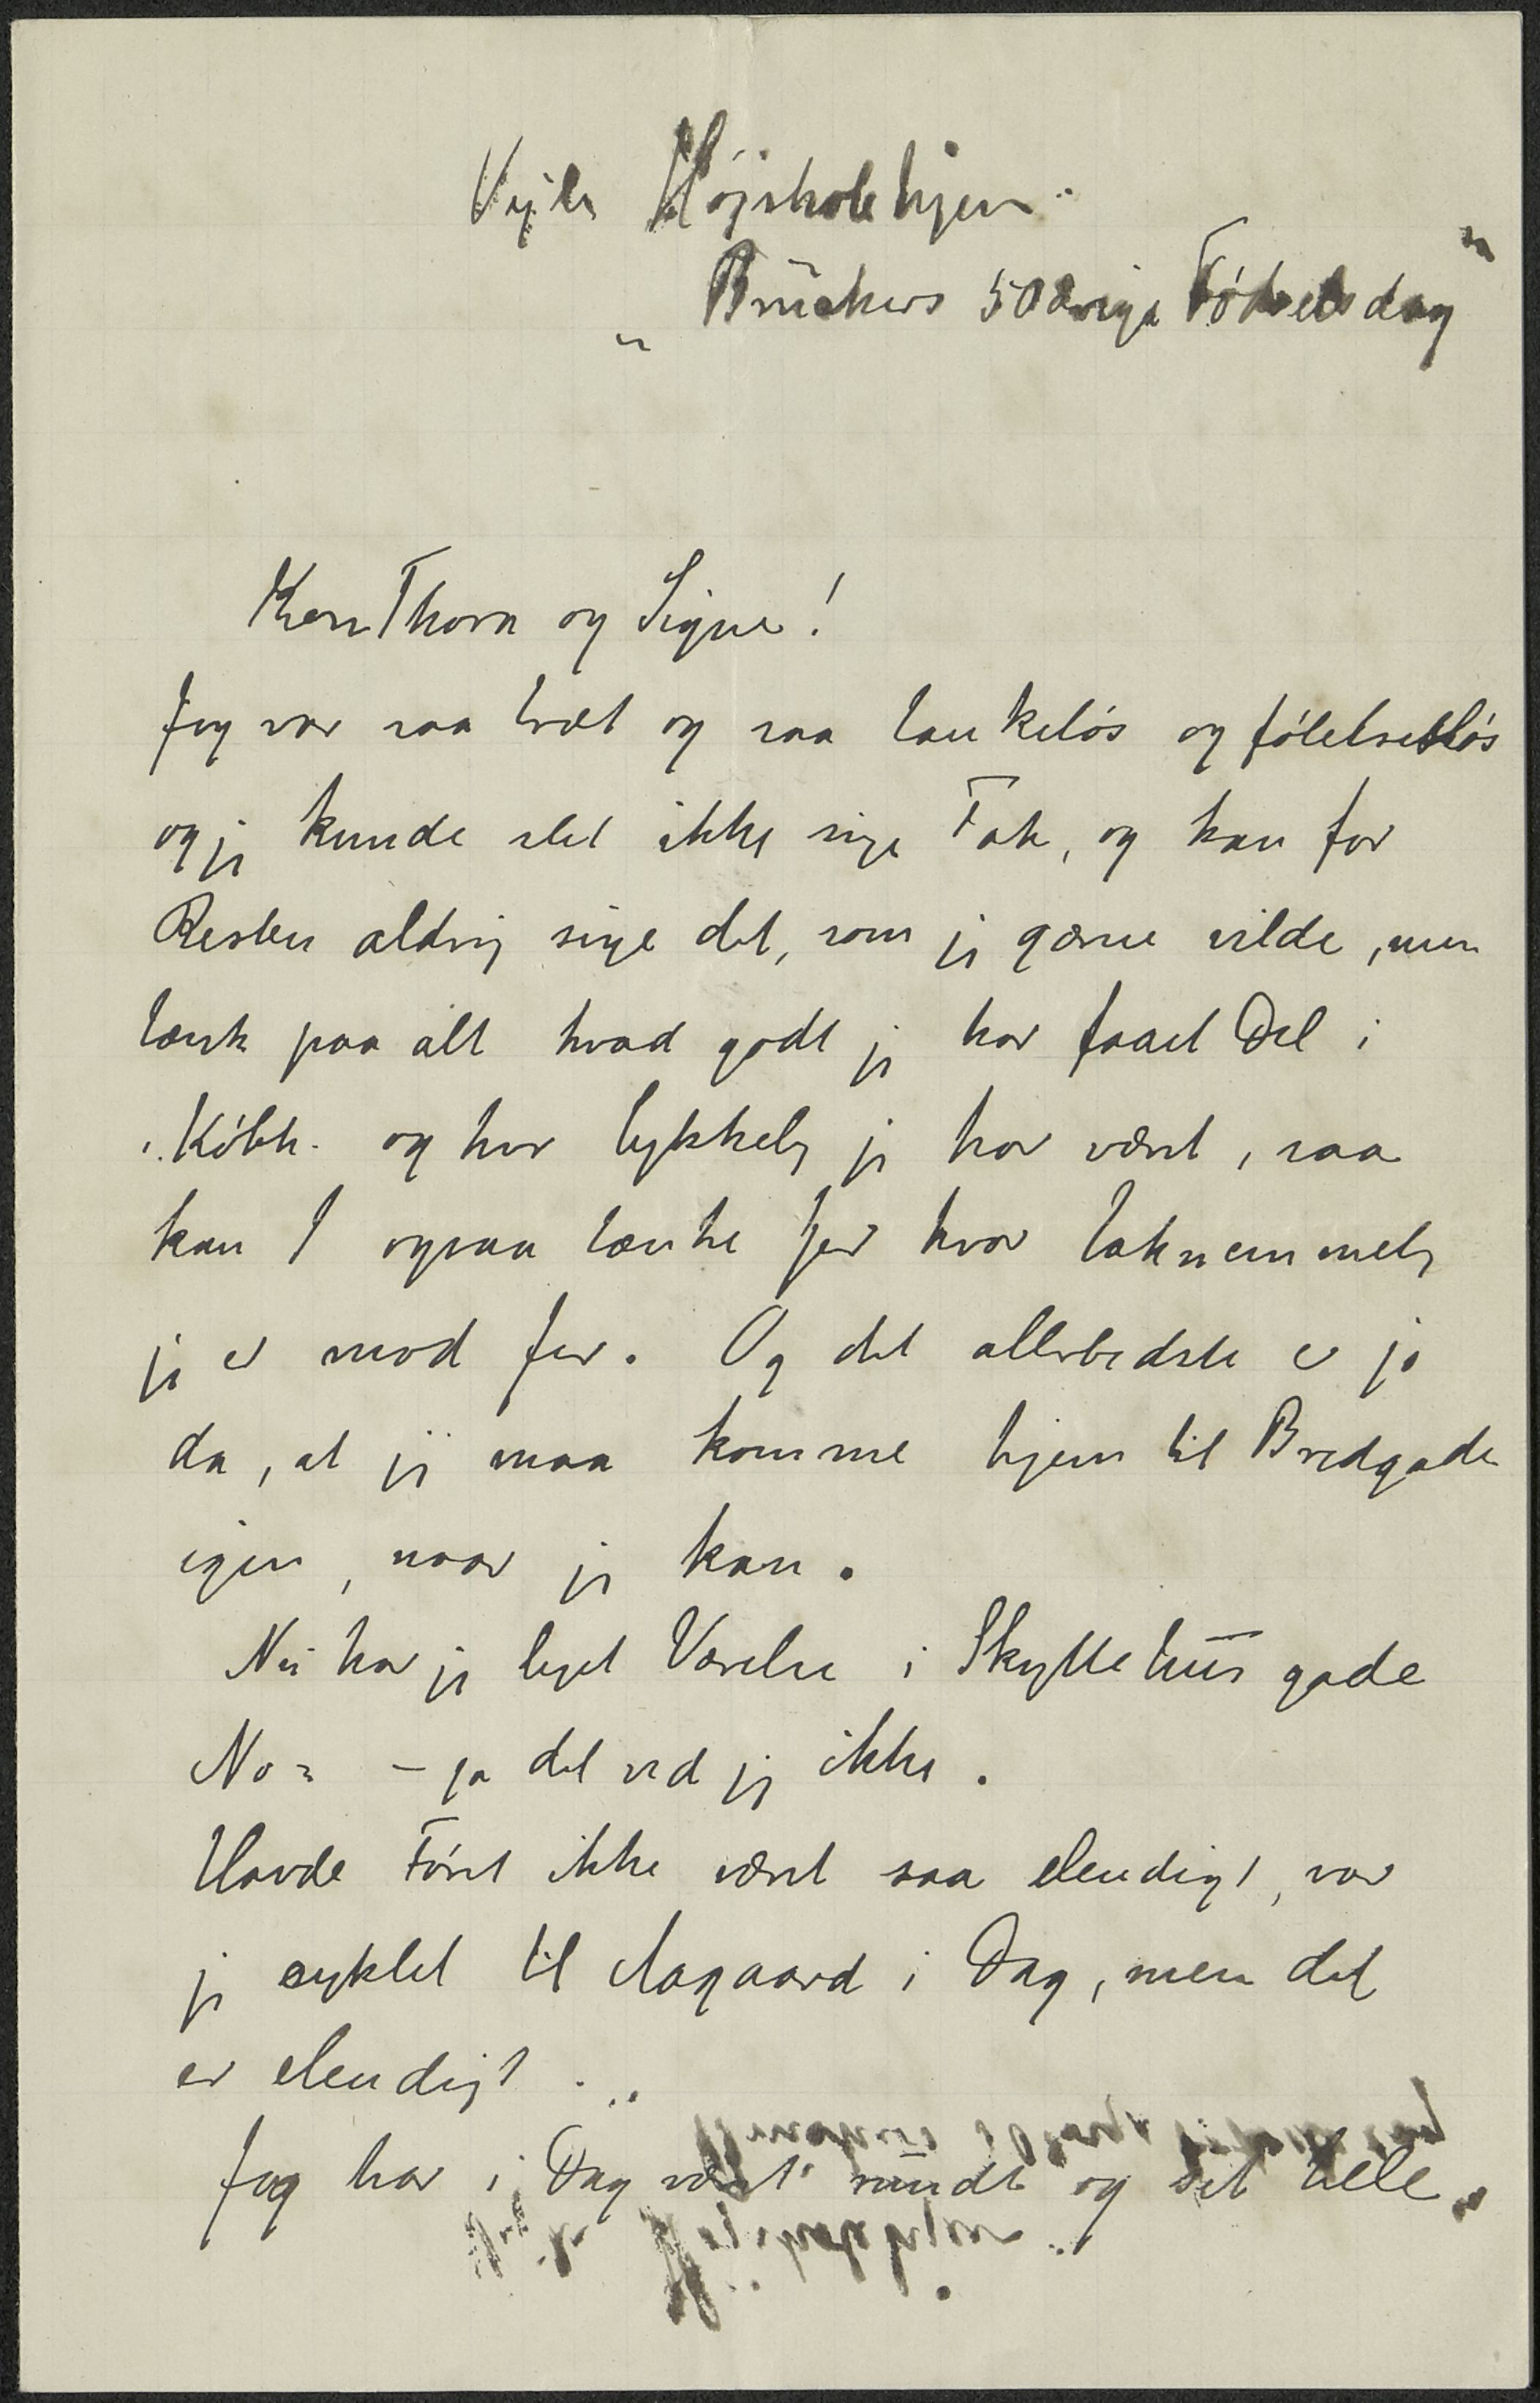 Vejle Højskolehjem
„Brückers 50aarige Fødselsdag"
Kære Thora og Signe!
Jeg var saa træt og saa tankeløs og følelsesløs
og jeg kunde slet ikke sige Tak, og kan for
Resten aldrig sige det, som jeg gærne vilde, men
tænk paa alt hvad godt jeg har faaet Del i
i Købh. og hvor lykkelig jeg har været, saa
kan I ogsaa tænke Jer hvor taknemmelig
jeg er mod Jer. Og det allerbedste er jo
da, at jeg maa komme hjem til Bredgade
igen, naar jeg kan.
Nu har jeg lejet Værelse i Skyttehusgade
No = – ja det ved jeg ikke.
Havde Føret ikke været saa elendigt, var
jeg cyklet til Aagaard i Dag, men det
er elendigt ...
Jeg har i Dag været rundt og set hele